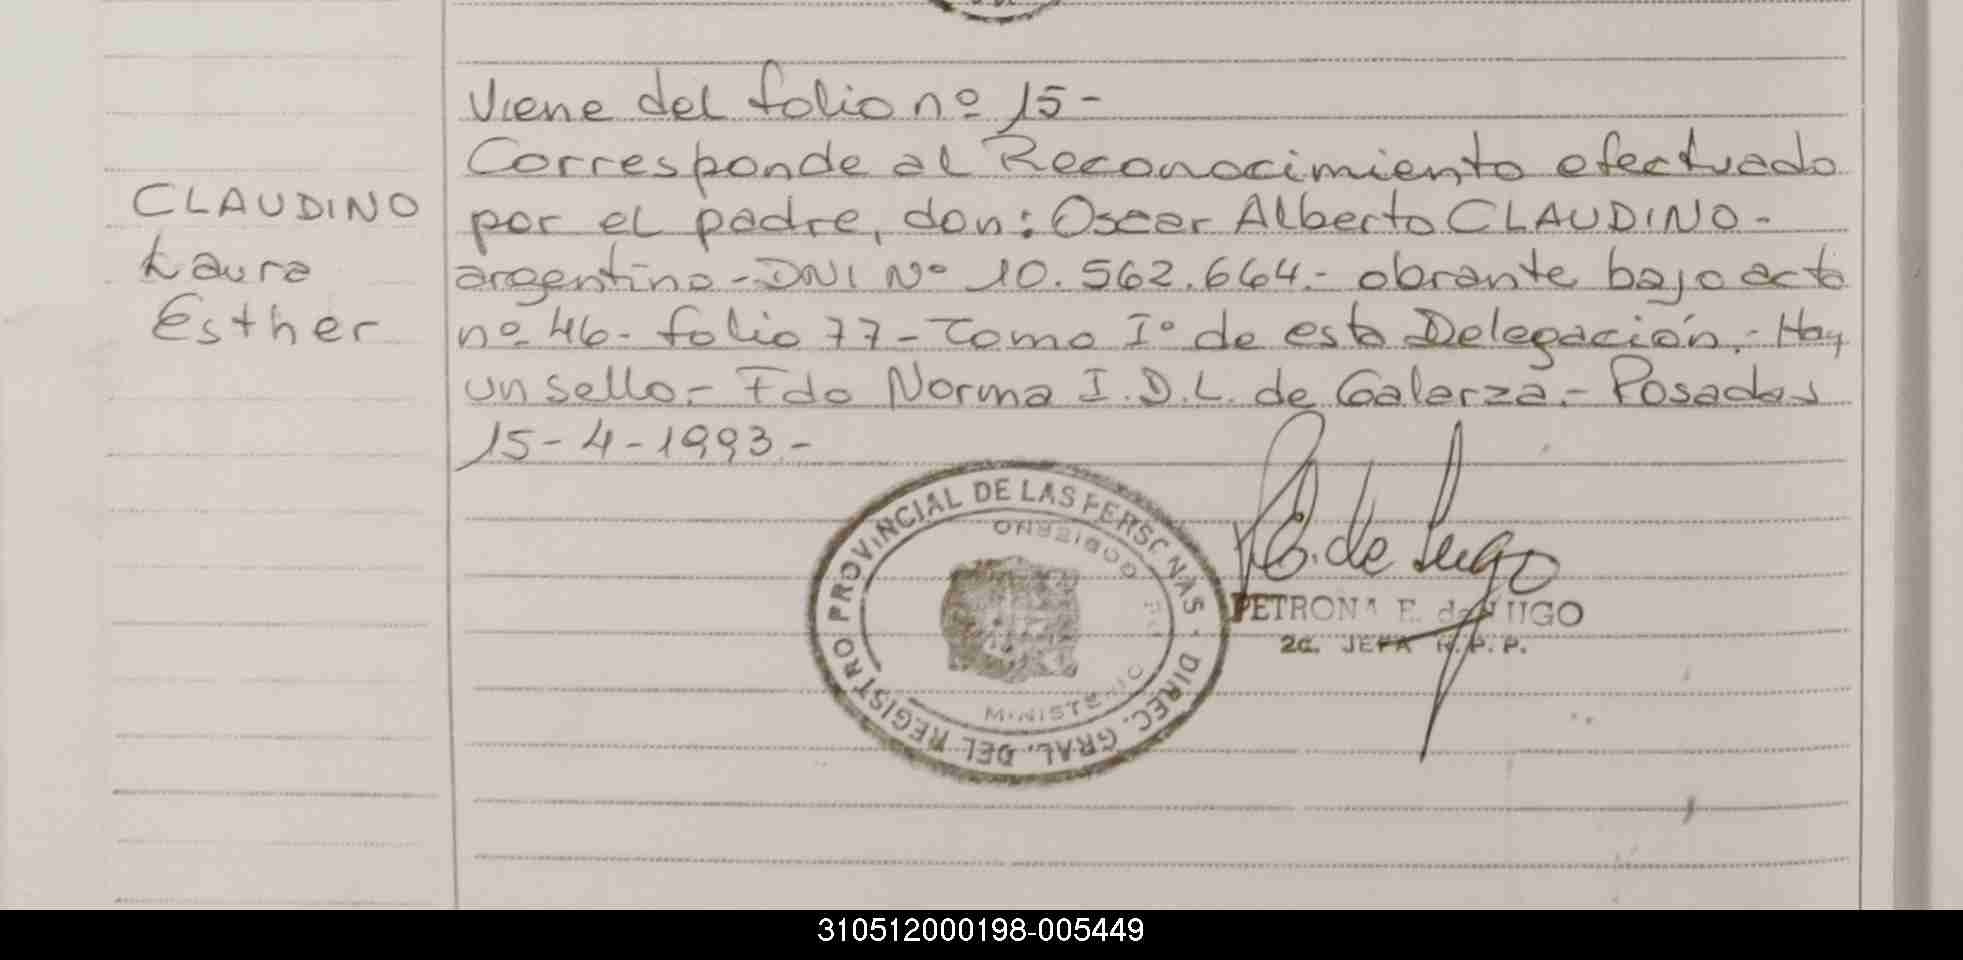 Viene del folio nº 15-
Corresponde al Reconocimiento efectuado
CLAUDINO
por el padre, don: Oscar Alberto CLAUDINO-
Laura
argentino-DNI Nº 10.562.664.- obrante bajo acta
Esther
nº 46- folio 77- Tomo Iº de esta Delegación.- Hay
un sello.- Fdo Norma I.D.L. de Galarza.- Posadas
15-4-1993.-
DIREC. GRAL. DEL REGISTRO PROVINCIAL DE LAS PERSONAS
MINISTERIO GOBIERNO
E. de Lugo
PETRONA E. de LUGO
2a. JEFA R.P.P.
310512000198-005449